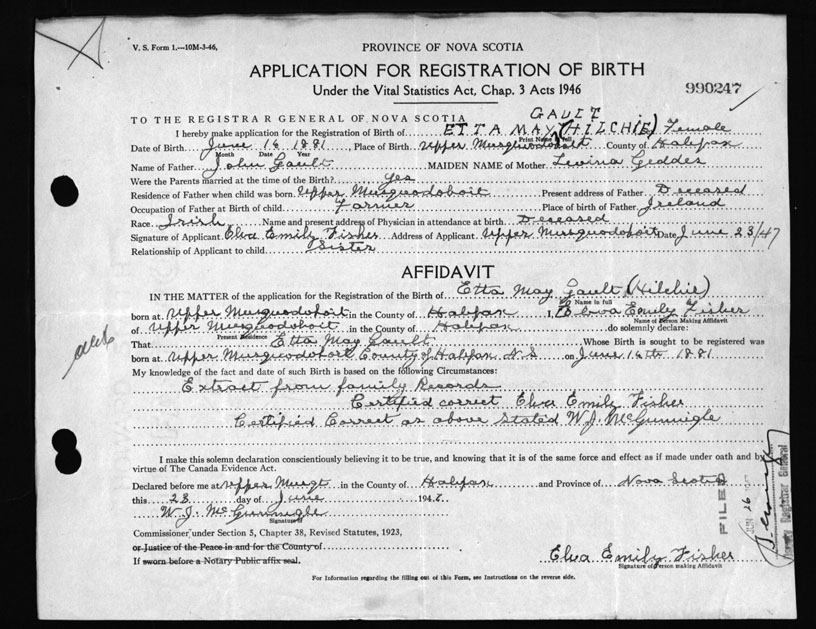 V. S. Form 1.—10M-3-46,
PROVINCE OF NOVA SCOTIA
APPLICATION FOR REGISTRATION OF BIRTH
Under the Vital Statistics Act, Chap. 3 Acts 1946
990247
TO THE REGISTRAR GENERAL OF NOVA SCOTIA
GAULT
I hereby make application for the Registration of Birth of ETTA MAY (HILCHIE) Female
Print Name in full
Date of Birth June 16 1881, Place of Birth Upper Musquodoboit County of Halifax
Month Date Year
Name of Father John Gault MAIDEN NAME of Mother Levina Geddes
Were the Parents married at the time of the Birth? yes
Residence of Father when child was born Upper Musquodoboit Present address of Father Deceased
Occupation of Father at Birth of child Farmer Place of birth of Father Ireland
Race Irish Name and present address of Physician in attendance at birth Deceased
Signature of Applicant Elva Emily Fisher Address of Applicant Upper Musquodoboit Date June 23/47
Relationship of Applicant to child Sister
AFFIDAVIT
IN THE MATTER of the application for the Registration of the Birth of Etta May Gault (Hilchie)
Name in full
born at Upper Musquodoboit in the County of Halifax I, Elva Emily Fisher
Name of Person Making Affidavit
of Upper Musquodoboit in the County of Halifax do solemnly declare:
Present Residence
That Etta May Gault Whose Birth is sought to be registered was
born at Upper Musquodoboit County of Halifax N.S. on June 16th 1881
My knowledge of the fact and date of such Birth is based on the following Circumstances:
Extract from family Records
Certified correct Elva Emily Fisher
Certified Correct as above stated W. J. McGunnigle
I make this solemn declaration conscientiously believing it to be true, and knowing that it is of the same force and effect as if made under oath and by
virtue of The Canada Evidence Act.
Declared before me at Upper Musqt in the County of Halifax and Province of Nova Scotia
this 23 day of June 1947.
W. J. McGunnigle
Signature of
Commissioner under Section 5, Chapter 38, Revised Statutes, 1923,
or Justice of the Peace in and for the County of
If sworn before a Notary Public affix seal.
Elva Emily Fisher
Signature of Person making Affidavit
For Information regarding the filling out of this Form, see Instructions on the reverse side.
FILED
JUN 26
Deputy Registrar General